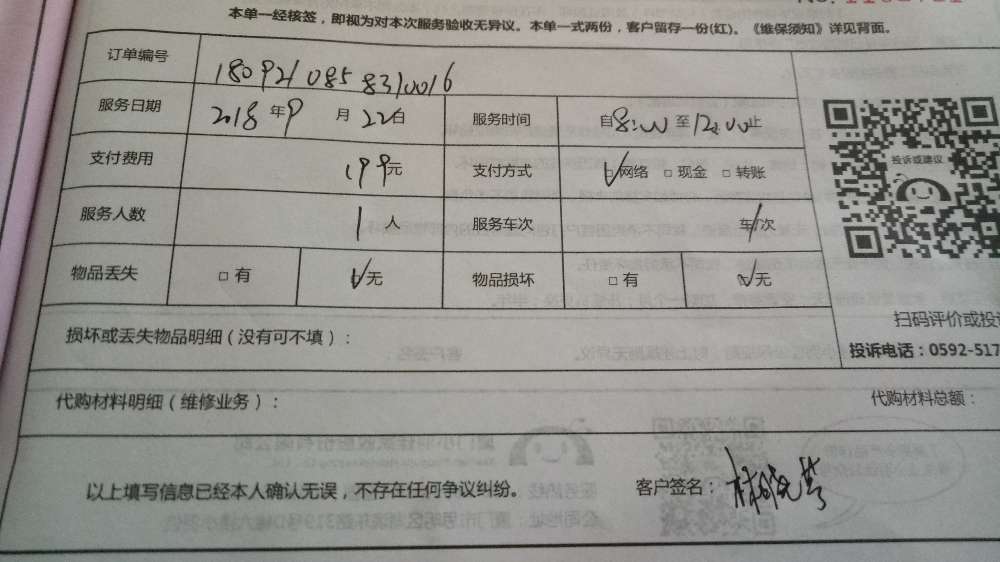 本单一经核签，即视为对本次服务验收无异议。本单一式两份，客户留存一份(红)。《维保须知》详见背面。
订单编号 1809210858310016
服务日期 2018年9月22日 服务时间 自8:00至12:00止
支付费用 199元 支付方式 □网络 □现金 □转账
投诉或建议
服务人数 1人 服务车次 车/次
物品丢失 □有 □无 物品损坏 □有 □无
扫码评价或投诉
损坏或丢失物品明细（没有可不填）：
投诉电话：0592-517
代购材料明细（维修业务）：
代购材料总额：
以上填写信息已经本人确认无误，不存在任何争议纠纷。
客户签名：林